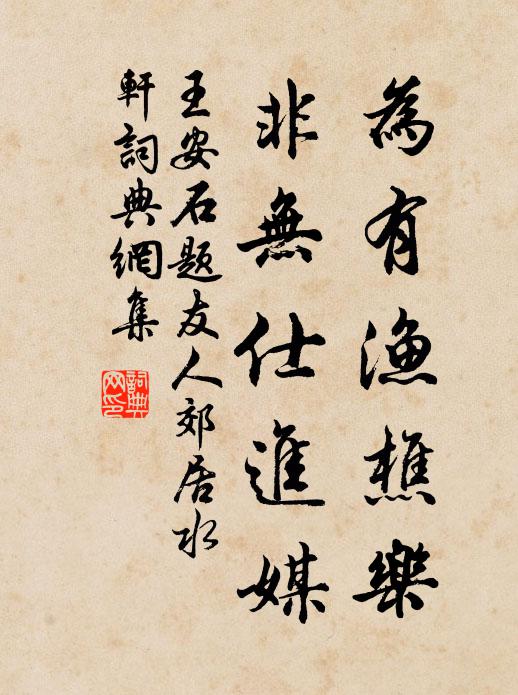 為有漁樵樂
非無仕進媒
王安石題友人郊居水
軒詞典網集
詞典網印